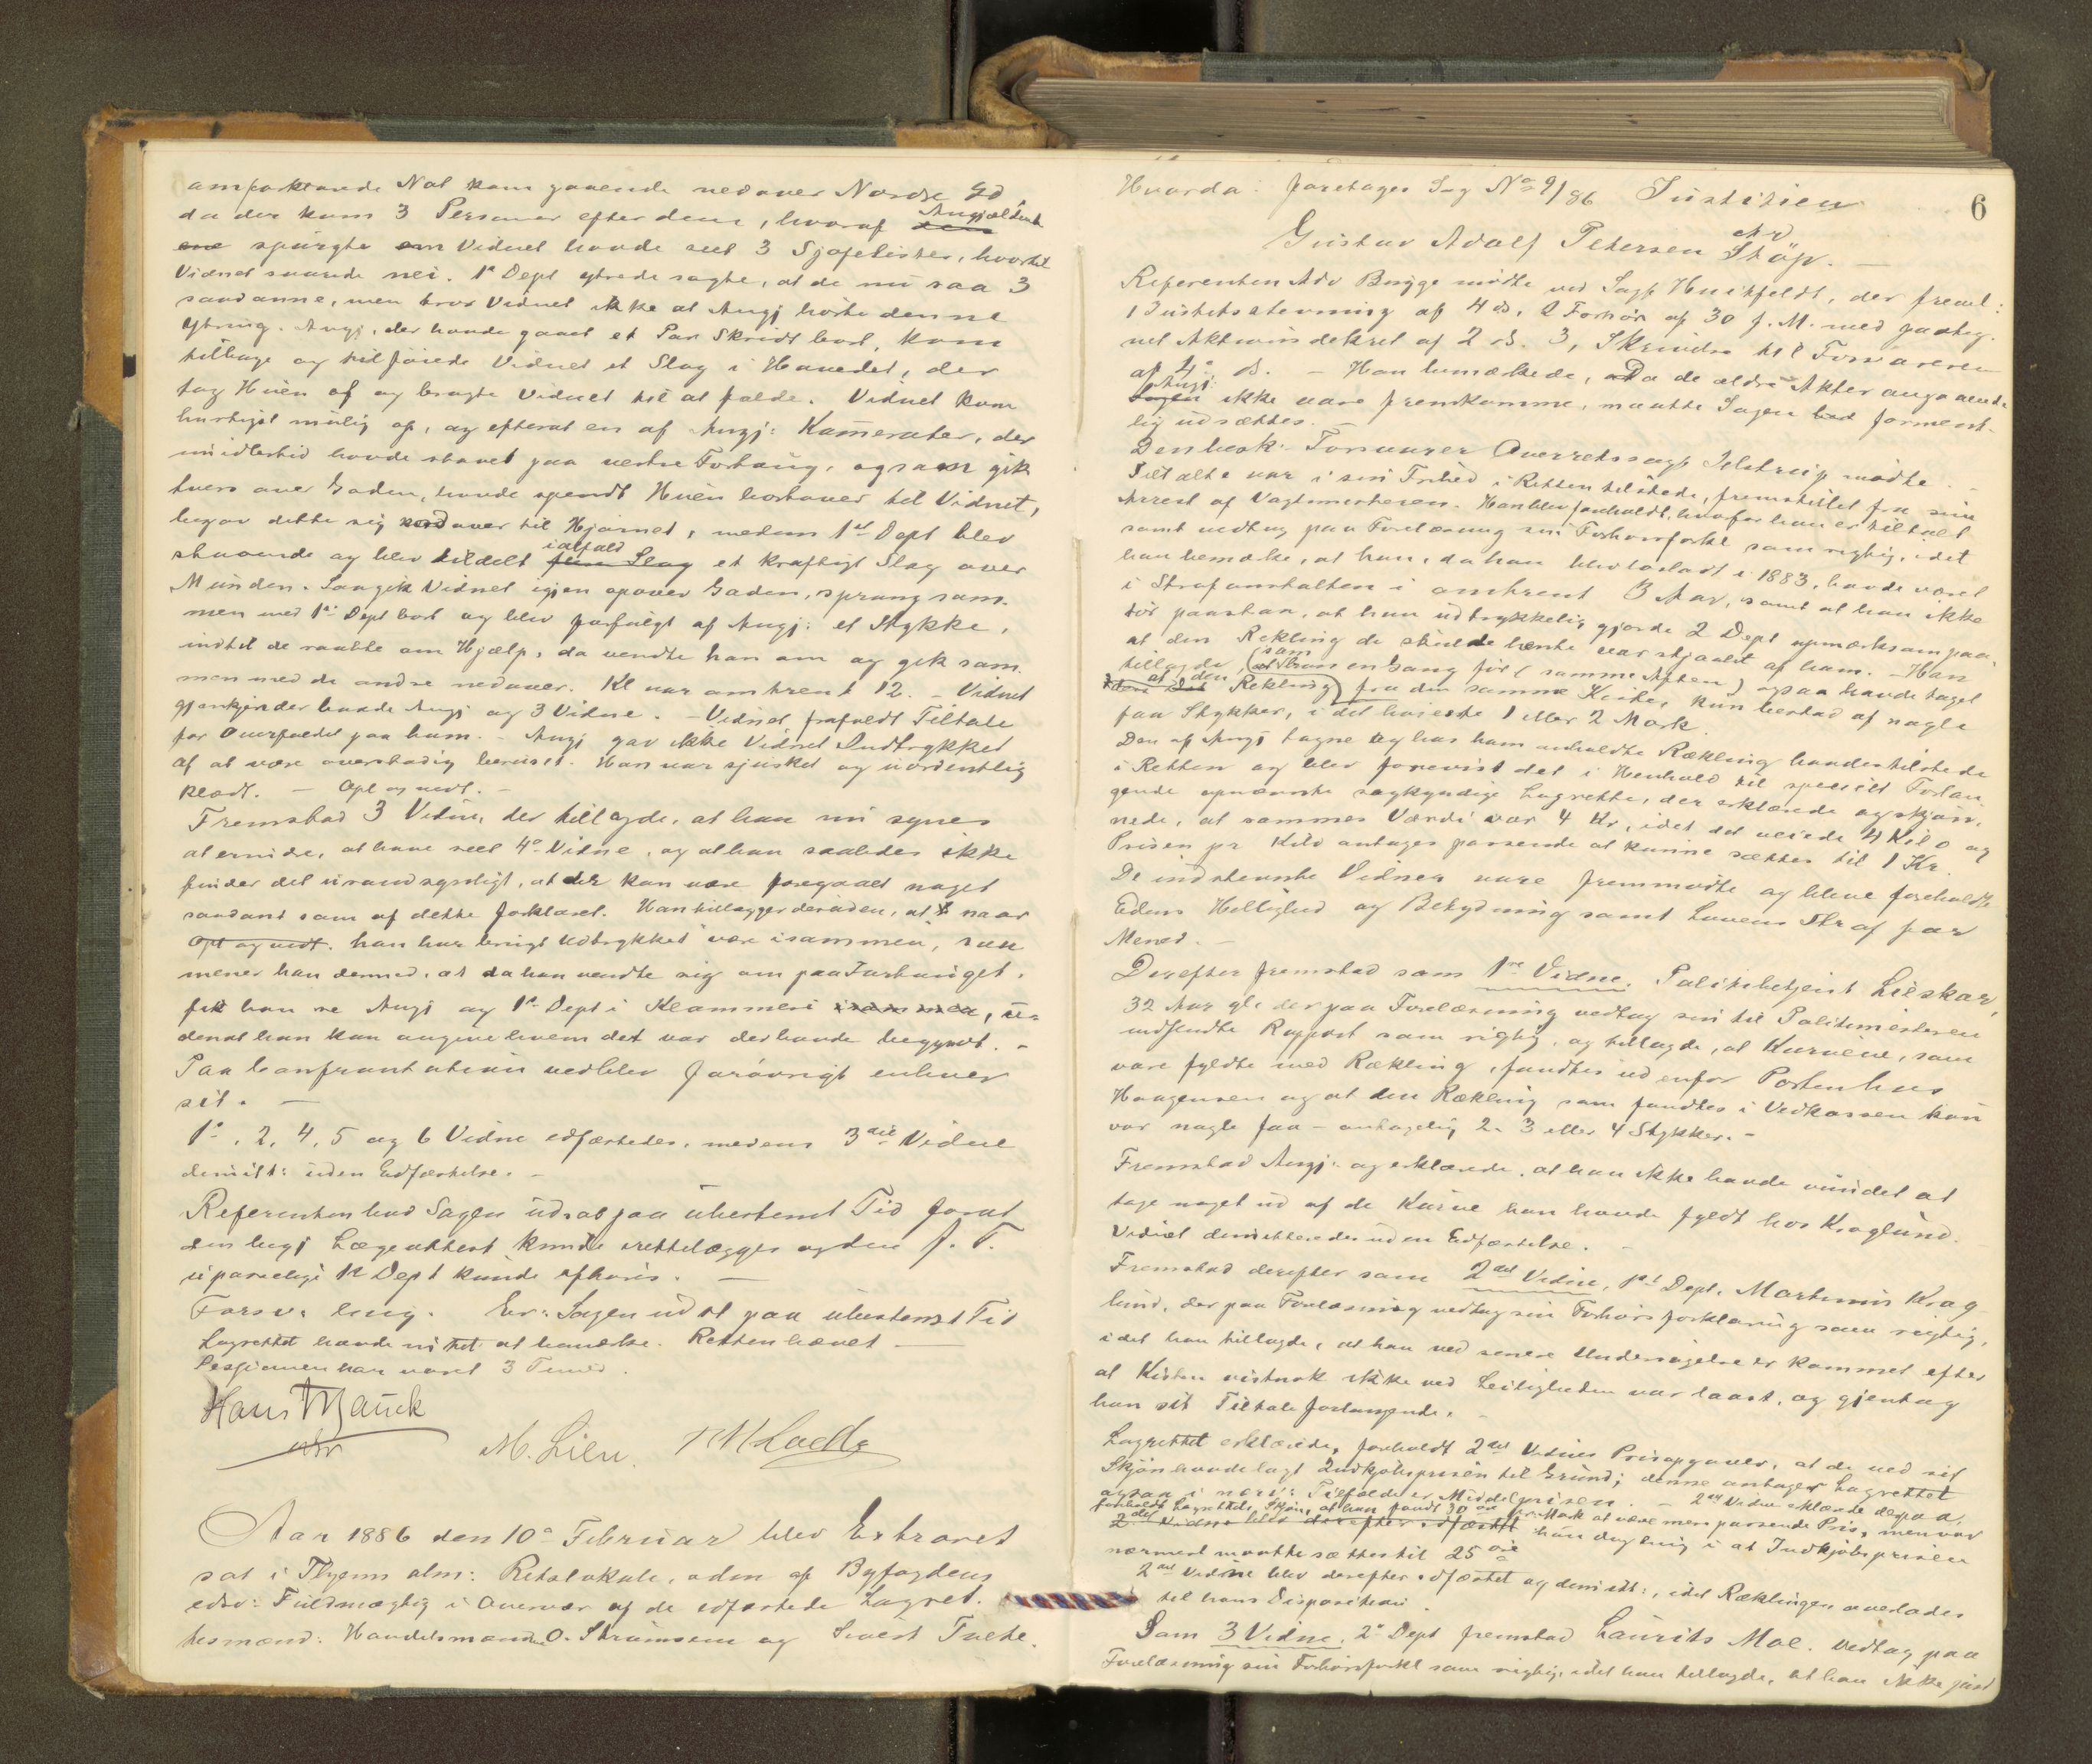 omforklarede Nat kom gaaende nedover Nordre Gd
da der kom 3 Personer efter dem, hvoraf Angjældende
spurgte om Vidnet havde seet 3 Sjofelister, hvortil
Vidnet svarede nei. 1ᵉ Dept ytrede sagte, at de nu saa 3
saadanne, men tror Vidnet ikke at Angj hörte denne
Ytring. Angj, der havde gaaet et Par Skridt bort, kom
tilbage og tilföiede Vidnet et Slag i Hovedet, der
tog Huen af og bragte Vidnet til at falde. Vidnet kom
hurtigst mulig op, og efterat en af Angj: Kamerater, der
imidlertid havde staaet paa vestre Fortaug, ogsaa gik
tvers over Gaden, havde spendt Huen bortover til Vidnet,
begav dette sig nedover til Hjörnet, medens 1ˢᵗ Dept blev
staaende og blev tildelt ialfald et kraftigt Slag over
Munden. Saa gik Vidnet igjen opover Gaden, sprang sam-
men med 1ᵉ Dept bort og blev forfulgt af Angj: et Stykke,
indtil de raabte om Hjælp, da vendte han om og gik sam-
men med de andre nedover. Kl var omtrent 12. – Vidnet
gjenkjender baade Angj og 3 Vidne. – Vidnet frafaldt Tiltale
for Overfaldet paa ham. – Angj gav ikke Vidnet Indtrykket
af at være overstadig beruset. Han var sjusket og uordentlig
klædt. – Opl og vedt. –
Fremstod 3 Vidne, der tillagde, at han nu synes
at erindre, at have seet 4ᵉ Vidne, og at han saaledes ikke
finder det usandsynligt, at der kan være foregaaet noget
saadant som af dette forklaret. Han tillægger desuden, at naar
Opl og vedt. han har brugt Udtrykket være isammen, saa
mener han dermed, at da han vendte sig om paa Fortauget,
fik han se Angj og 1ᵉ Dept i Klammeri isammen, u-
denat han kan angive hvem det var der havde begyndt. –
Paa Confrontation vedblev forövrigt enhver
sit. –
1ᵉ, 2, 4, 5 og 6 Vidne edfæstedes, medens 3die Vidne
demitt: uden Edfæstelse. –
Referenten bad Sagen udsat paa ubestemt Tid forat
den beg: Lægeattest kunde irettelægges og den f. T.
upasselige 12 Dept kunde afhöres. –
Forsv: enig. Er: Sagen udst paa ubestemt Tid
Lagrettet havde intet at bemærke. Retten hævet –
Sessionen har varet 3 Timer.
Hans Mauck
M. Lien.
Aar 1886 den 10ᵉ Februar blev Extraret
sat i Thjems alm: Retslokale, aden af Byfogdens
edsv: Fuldmægtig i Overvær af de edfæstede Lagret-
tesmænd: Handelsmænd O. Strömsem og Sivert Tvete.
6
Hvorda: foretoges Sag Nº 9/86 Justitien
ctr
Gustav Adolf Petersen Stöp. –
Referenten Adv Brygge mödte ved Sagf Huitfeldt, der freml:
1 Justitsstevning af 4 ds, 2 Forhör af 30 f. M. med paateg-
net Aktorisdekret af 2 ds. 3, Skrivelse til Forsvareren
af 4 ds. – Han bemærkede, Da de ældre Akter angaaende
Angj: ikke vare fremkomne, maatte Sagen forment-
lig udsættes.
Den besk: Forsvarer Overretssagf mödte.
Tiltalte var i sin Frihed i Retten tilstede, fremstillet fra sin
Arrest af Vagtmesteren. Han blev foreholdt, hvorfor han er tiltalt
samt vedtog paa Forelæsning sin Forhörsforkl som rigtig, idet
han bemærke, at han, da han blev löslatt i 1883, havde været
i Strafanstalten i omtrent 3 Aar, samt at han ikke
tör paastaa, at han udtrykkelig gjorde 2 Dept opmærksom paa,
at den Rekling de skulde hente var stjaalet af ham. – Han
tillagde, (som han en Gang för (samme Aften) ogsaa havde taget
at den Rekling) fra den samme Kiste, kun bestod af nogle
faa Stykker, i det höieste 1 eller 2 Mark.
Den af Angj tagne og hos ham anholdte Rækling havdes tilstede
i Retten og blev forevist det i Henhold til specielt Forlan-
gende opnævnte sagkyndige Lagrette, der erklærede og skjön-
nede, at sammes Værdi var 4 Kr, idet det veiede 4 Kilo og
Prisen pr Kilo antages passende at kunne sættes til 1 Kr.
De indstevnte Vidner vare fremmödte og bleve foreholdte
Edens Hellighed og Betydning samt Lovens Straf for
Mened. –
Derefter fremstod som 1ste Vidne, Politibetjent Lilskar,
32 Aar gl: der paa Forelæsning vedtog sin til Politimesteren
indsendte Rapport som rigtig, og tillagde, at Kurvene, som
vare fyldte med Rækling, fandtes udenfor Portenhus
Haagensen og at den Rækling som fandtes i Vedkassen kun
var nogle faa – antagelig 2, 3 eller 4 Stykker. –
Fremstod Angj: og erklærede, at han ikke havde vundet at
tage noget ud af de Kurve han havde fyldt hos Kroglund.
Vidnet demitteredes uden Edfæstelse. –
Fremstod derefter som 2det Vidne, 1ste Dept, Martinus Krog-
lund, der paa Forelæsning vedtog sin Forhörsforklaring som rigtig,
idet han tillagde, at han ved senere Undersögelse er kommet efter
at Kisten vistnok ikke ved Leiligheden var laast, og gjentog
han sit Tiltale forlangende. –
Lagrettet erklærede, foreholdt 2det Vidnes Prisopgaver, at de ved sit
Skjön havde lagt Indkjöbsprisen til Grund; denne antager Lagrettet
ogsaa i nærv: Tilfælde er Middelprisen. – 2det Vidne erklærede derpaa,
foreholdt Lagrettets Skjön, at han fandt 30 öre pr. Mark at være mere passende Pris, men var
2det Vidne blev derefter edfæstet han dog enig i at Indkjöbsprisen
nærmest maatte sættes til 25 öre
2det Vidne blev derefter edfæstet og demitt:, idet Ræklingen overlades
til hans Disposition.
Som 3 Vidne, 2ᵉ Dept fremstod Laurits Moe. vedtog paa
Forelæsning sin Forhörsforkl som rigtig, idet han tillagde, at han ikke just